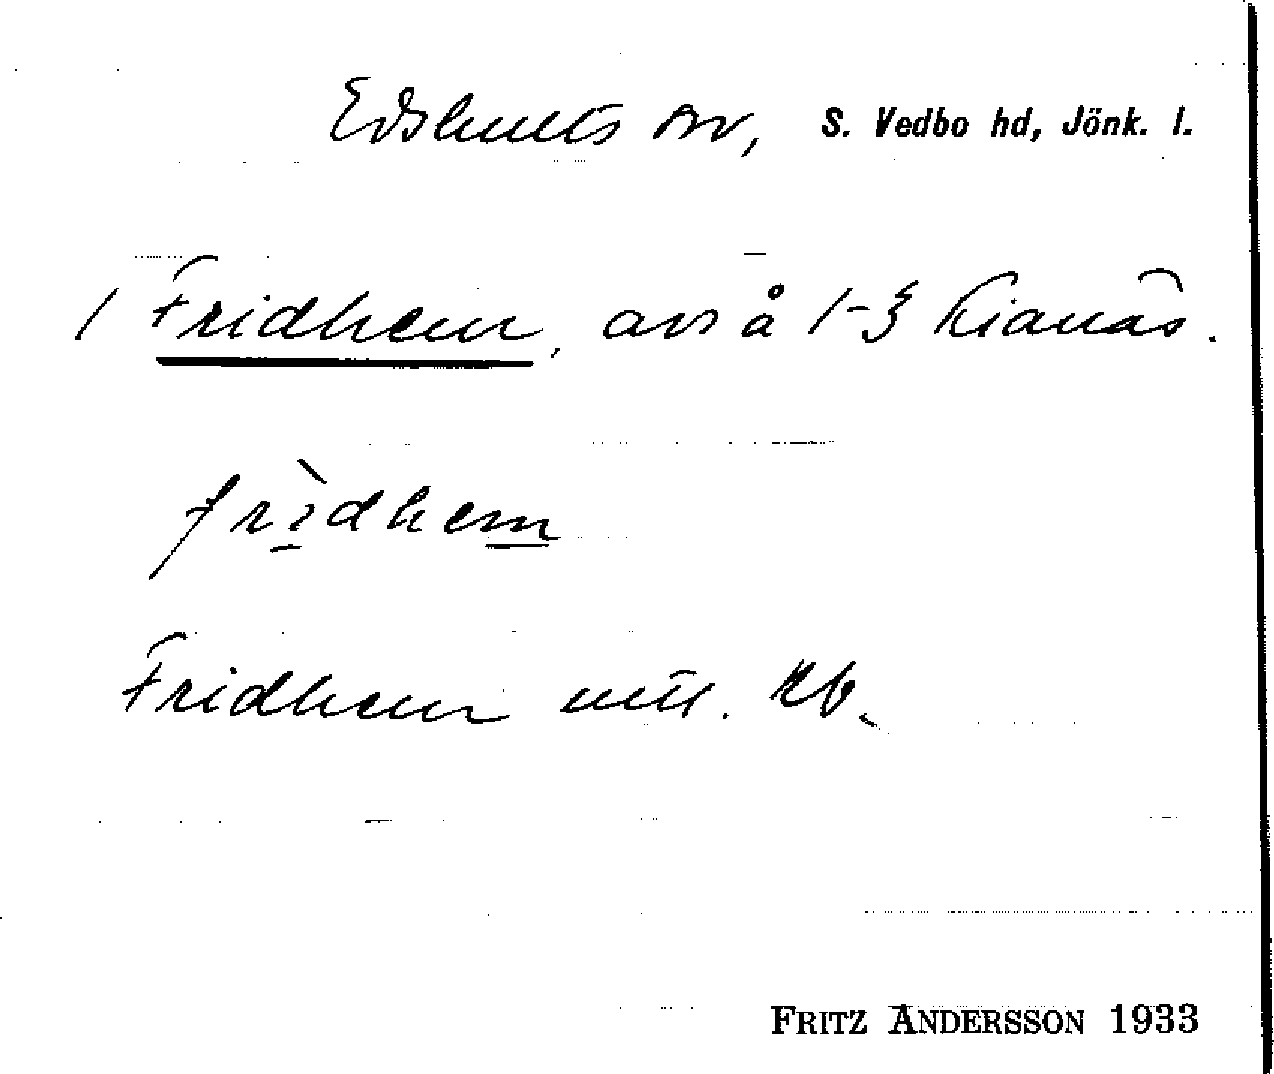 Edshults sn, S. Vedbo hd, Jönk. l.
1 Fridhem, avs å 1-3 Kianäs.
frì̱dhem̲
Fridhem utt. kb.
FRITZ ANDERSSON 1933